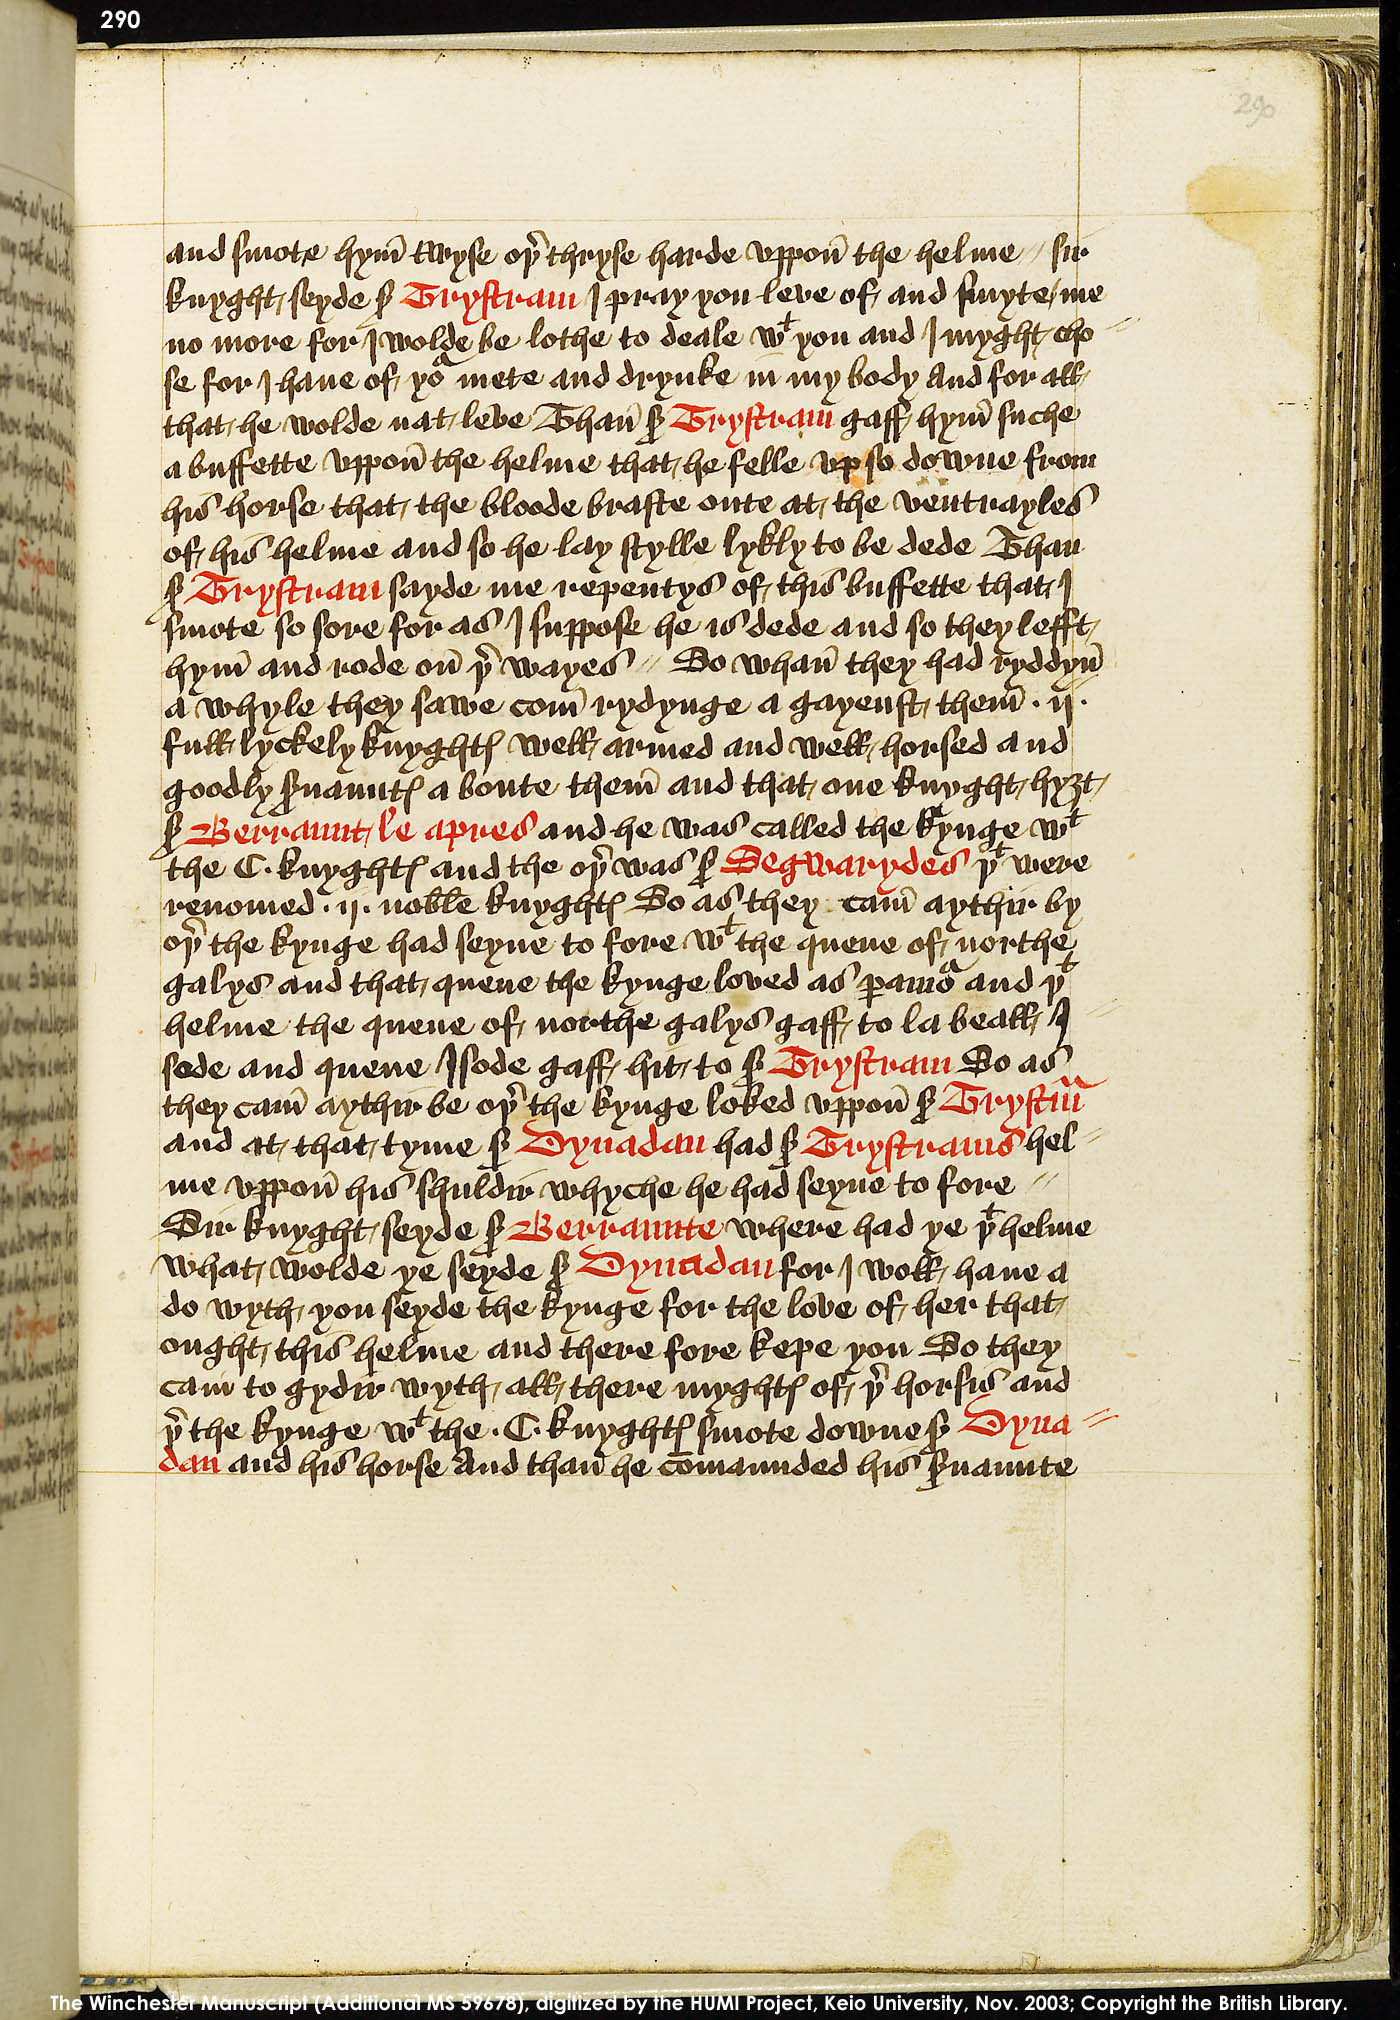 290
290
and smote hym̄ twyse oþ͛ thryse harde vppon̄ the helme // sir
knyght seyde S͛ Trystram I pray you leve of and smyte me
no more for I wolde be lothe to deale wᵗ you and I myght cho //
se for I haue of yoᵃ mete and drynke in my body And for all
that he wolde nat leve Than̄ S͛ Trystram gaff hym̄ suche
a buffette vppon̄ the helme that he felle vp so downe from
his horse that the bloode braste oute at the ventrayles
of his helme and so he lay stylle lykly to be dede Than
S͛ Trystram sayde me repentys of this buffette that I
smote so sore for as I suppose he is dede and so they lefft
hym̄ and rode on̄ þ͛ wayes // So whan̄ they had ryddyn̄
a whyle they sawe com̄ rydynge a gayenst them̄ . ij .
full lyckely knyghtꝭ well armed and well horsed and
goodly s͛uauntꝭ a boute them̄ and that one knyght hyȝt
S͛ Berraunt le apres and he was called the kynge wᵗ
the C . knyghtꝭ and the oþ͛ was S͛ Segwarydes þᵗ were
renomed . ij . noble knyghtꝭ So as they cam̄ aythir by
oþ͛ the kynge had seyne to fore wᵗ the quene of northe
galys and that quene the kynge loved as ꝑamoᵃ and þᵗ
helme the quene of northe galys gaff to la beall I //
sode and quene Isode gaff hit to S͛ Trystram So as
they cam̄ aythir be oþ͛ the kynge loked vppon̄ S͛ Trystm̄
and at that tyme S͛ Dynadan had S͛ Trystrams hel //
me vppon̄ his shuldir whyche he had seyne to fore //
Sir knyght seyde S͛ Berraunte where had ye þᵗ helme
what wolde ye seyde S͛ Dynadan for I woll haue a
do wyth you seyde the kynge for the love of her that
ought this helme and there fore kepe you So they
cam to gydir wyth all there myghtꝭ of þ͛ horsis and
þ͛ the kynge wᵗ the . C . knyghtꝭ smote downe S͛ Dyna //
dan and his horse And than̄ he com̄aunded his s͛uaunte
The Winchester Manuscript (Additional MS 59678), digitized by the HUMI Project, Keio University, Nov. 2003; Copyright the British Library.